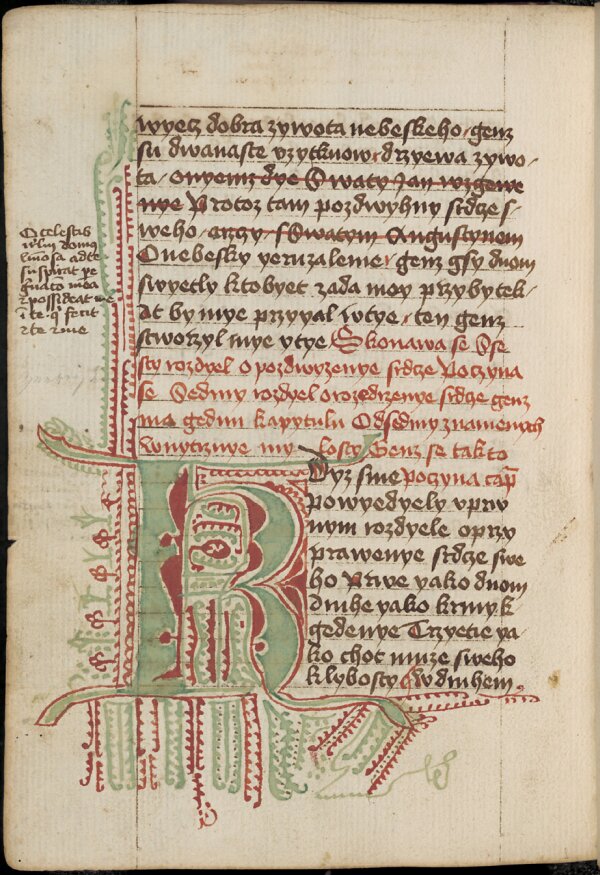 wyecz dobra zywota nebeskeho genz
su dwanaste vzytkuow drzyewa zywo
ta onyemz dye Swaty Jan wzgewe
nye Protoz tam pozdwyhny srdce s
weho Swatym Augustynem
O nebesky yeruzaleme genz gsy duom
swyetly ktobyet zada moy przybytek
at by mye przyyal wtye ten genz
stworzyl mye vtye Skonawa se Sse
sty rozdyel o pozdwyzenye srdce Poczyna
se Sedmy rozdyel orozssirzenye srdce genz
ma gednu kapytulu Odsedmy znamenych
wnytrznye my losty Genz se takto
poczyna cap
Dyz sme
powyedyely vprw
nym rozdyele oprzy
prawenye srdce swe
ho Prwe yako duom
duuhe yako krmyk
gedenye Trzyetie ya
ko chot muze sweho
klybosty wduuhem
O celestis
domus